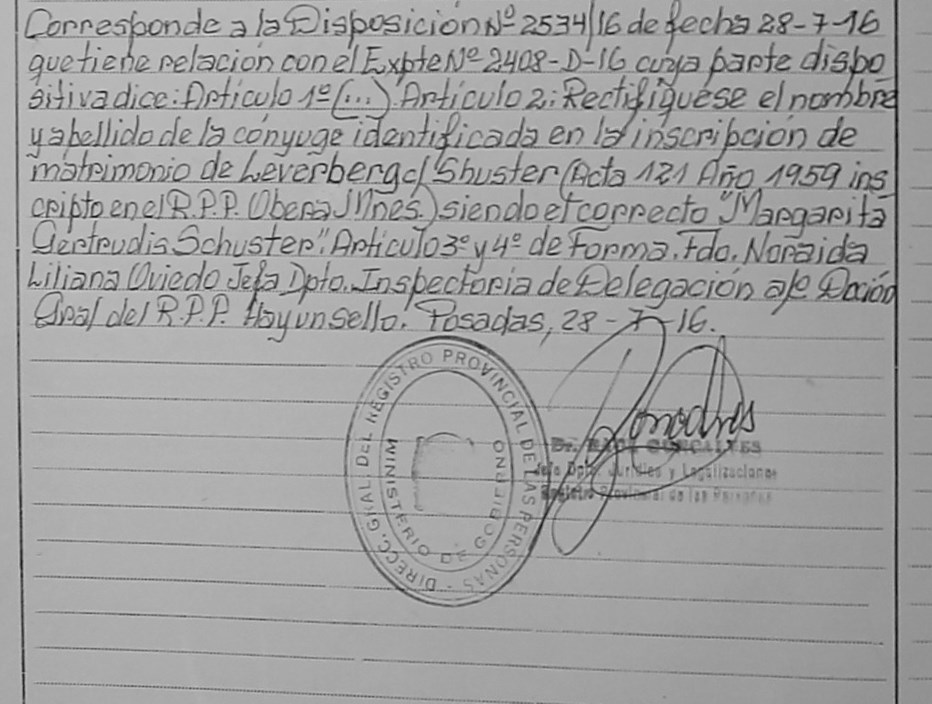 Corresponde a la Disposición Nº 2534/16 de fecha 28-7-16
que tiene relación con el Expte Nº 2408-D-16 cuya parte dispo
sitiva dice: Artículo 1º (...). Artículo 2: Rectifiquese el nombre
y apellido de la cónyuge identificada en la inscripción de
matrimonio de Leverberg c/ Shuster (Acta 121 Año 1959 ins
cripto en el R.P.P. Obera Mnes.) siendo el correcto "Margarita
Gertrudis Schuster". Artículo 3º y 4º de Forma. Fdo. Noraida
Liliana Oviedo Jefa Dpto. Inspectoria de Delegación a/c Dcción
Gral del R.P.P. Hay un sello. Posadas, 28-7-16.
DIRECC. GRAL DEL REGISTRO PROVINCIAL DE LAS PERSONAS -
MINISTERIO DE GOBIERNO
Dr. GONCALVES
Jefe Dpto. Jurídico y Legalizaciones
Registro Provincial de las Personas